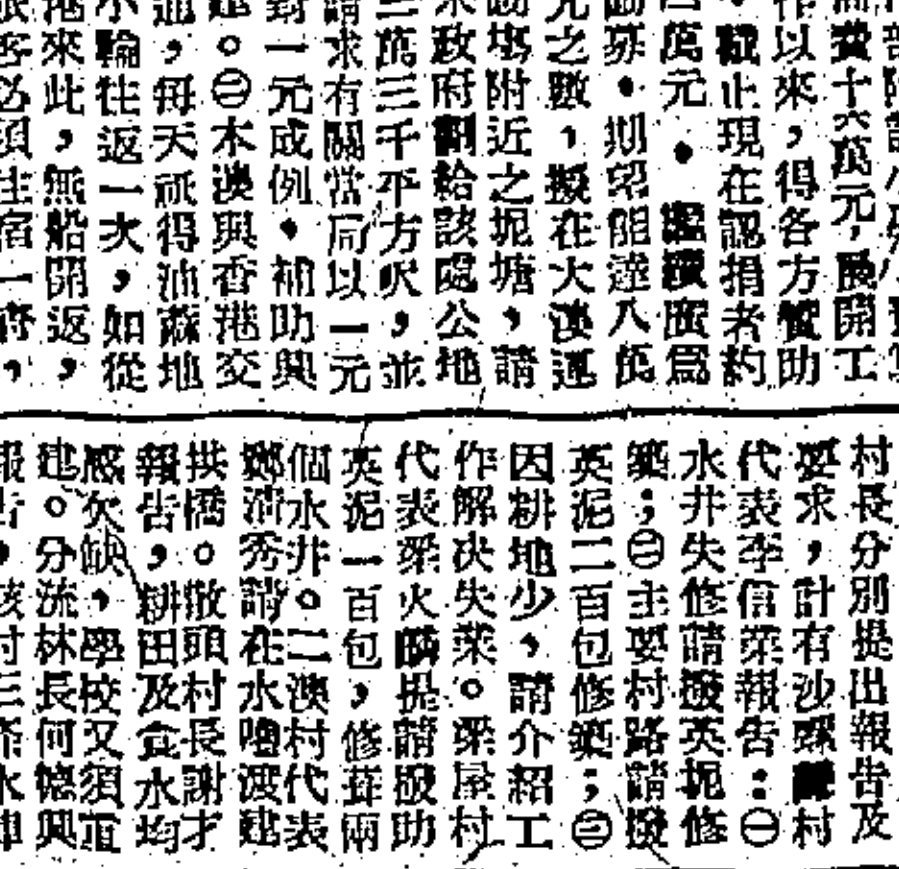 部附設小
需費十六萬元，後開工
作以來，得各方贊助
，截止現在認捐者約
四萬元。繼續廣爲
勸募，期望能達八萬
元之數，擬在大澳運
動塲附近之坭塘，請
求政府劃給該處公地
三萬三千平方呎，並
請求有關當局以一元
對一元成例，補助興
建。㊂大澳與香港交
通，每天祇得油蔴地
小輪往返一次，如從
港來此，無船開返，
旅客必須住宿一宵，
村長分別提出報告及
要求，計有沙螺村
代表李信榮報告：㊀
水井失修請撥英坭修
築；㊁主要村路請撥
英泥二百包修築；㊂
因耕地少，請介紹工
作解决失業。梁屋村
代表梁火麟提請撥助
英泥一百包，修葺兩
個水井。二澳村代表
鄭清秀請在水嘈渡建
拱橋。散頭村長謝才
報告，耕田及食水均
感欠缺，學校又須重
建。分流林長何德興
報告，該村三